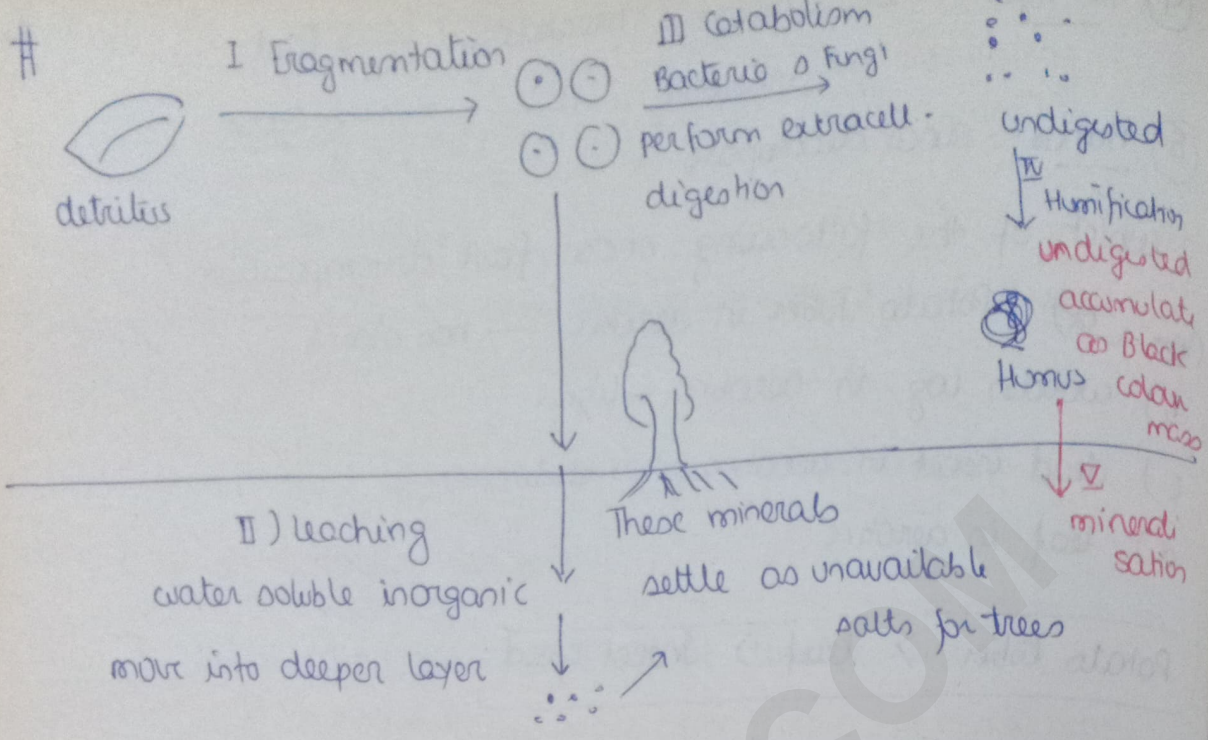 #
I Fragmentation
detritus
III Catabolism
Bacteria & Fungi
perform extracell.
digestion
undigested
IV
Humification
undigested
accumulat
as Black
colour
mass
Humus
V
minerali
sation
II) leaching
water soluble inorganic
move into deeper layer
These minerals
settle as unavailable
salts for trees
COM